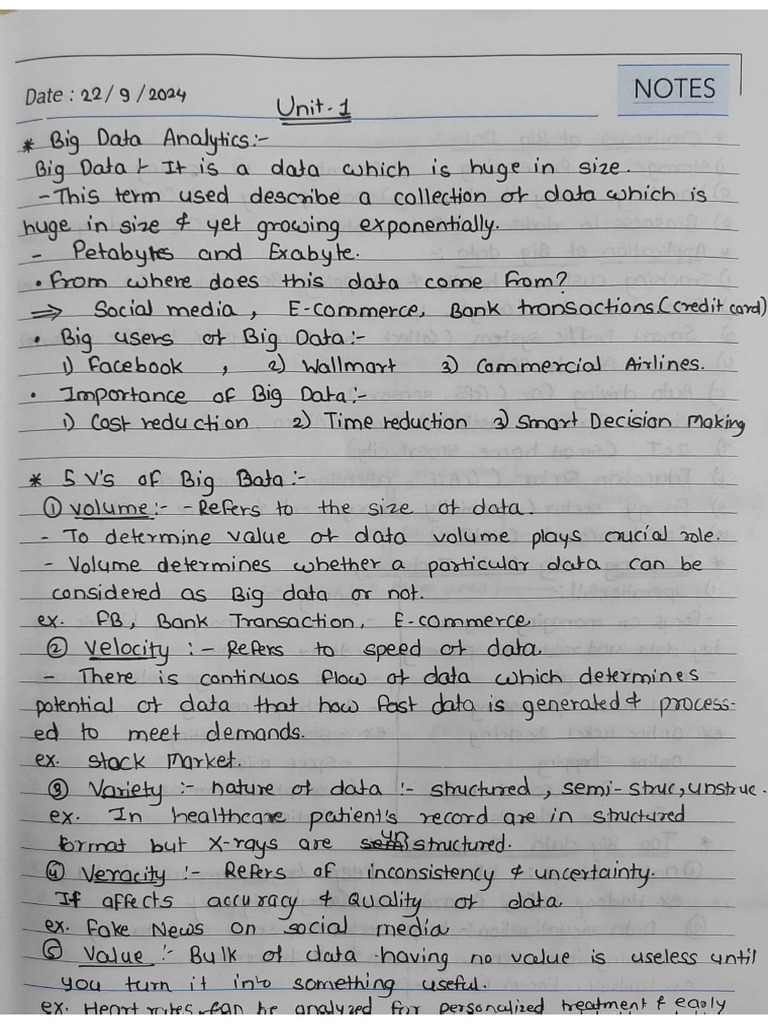 Date : 22/9/2024
NOTES
Unit-1
* Big Data Analytics:-
Big Data :- It is a data which is huge in size.
- This term used describe a collection of data which is
huge in size & yet growing exponentially.
- Petabytes and Exabyte.
• From where does this data come from?
⇒ Social media, E-commerce, Bank transactions (credit card)
• Big users of Big Data:-
1) Facebook , 2) Wallmart 3) Commercial Airlines.
• Importance of Big Data:-
1) Cost reduction 2) Time reduction 3) Smart Decision Making
* 5 V's of Big Data :-
① Volume :- - Refers to the size of data.
- To determine value of data volume plays crucial role.
- Volume determines whether a particular data can be
considered as Big data or not.
ex. FB, Bank Transaction, E-commerce
② Velocity :- Refers to speed of data
- There is continuos flow of data which determines
potential of data that how fast data is generated & process-
ed to meet demands.
ex. Stock Market.
③ Variety :- nature of data :- structured, semi-struc, unstruc.
ex. In healthcare patient's record are in structured
format but X-rays are unstructured.
④ Veracity :- Refers of inconsistency & uncertainty.
If affects accuracy & Quality of data.
ex. Fake News on social media
⑤ Value :- Bulk of data having no value is useless until
you turn it into something useful.
ex. Heart rates can be analyzed for personalized treatment & early